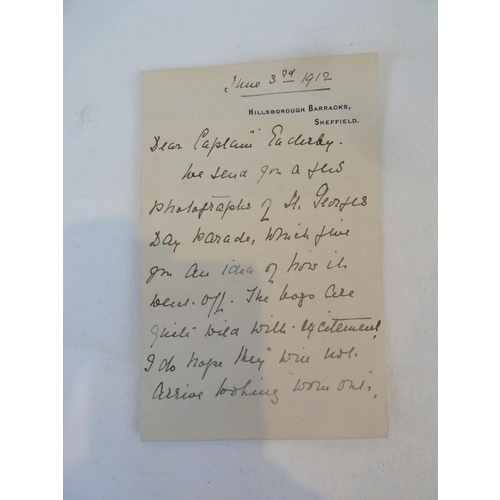 June 3rd 1912
HILLSBOROUGH BARRACKS,
SHEFFIELD.
Dear Captain Eaderby.
We send you a few
photographs of St. Georges
Day parade, which give
you an idea of how it
went off. The boys are
quite wild with excitement,
I do hope they will not
arrive looking "worn out",